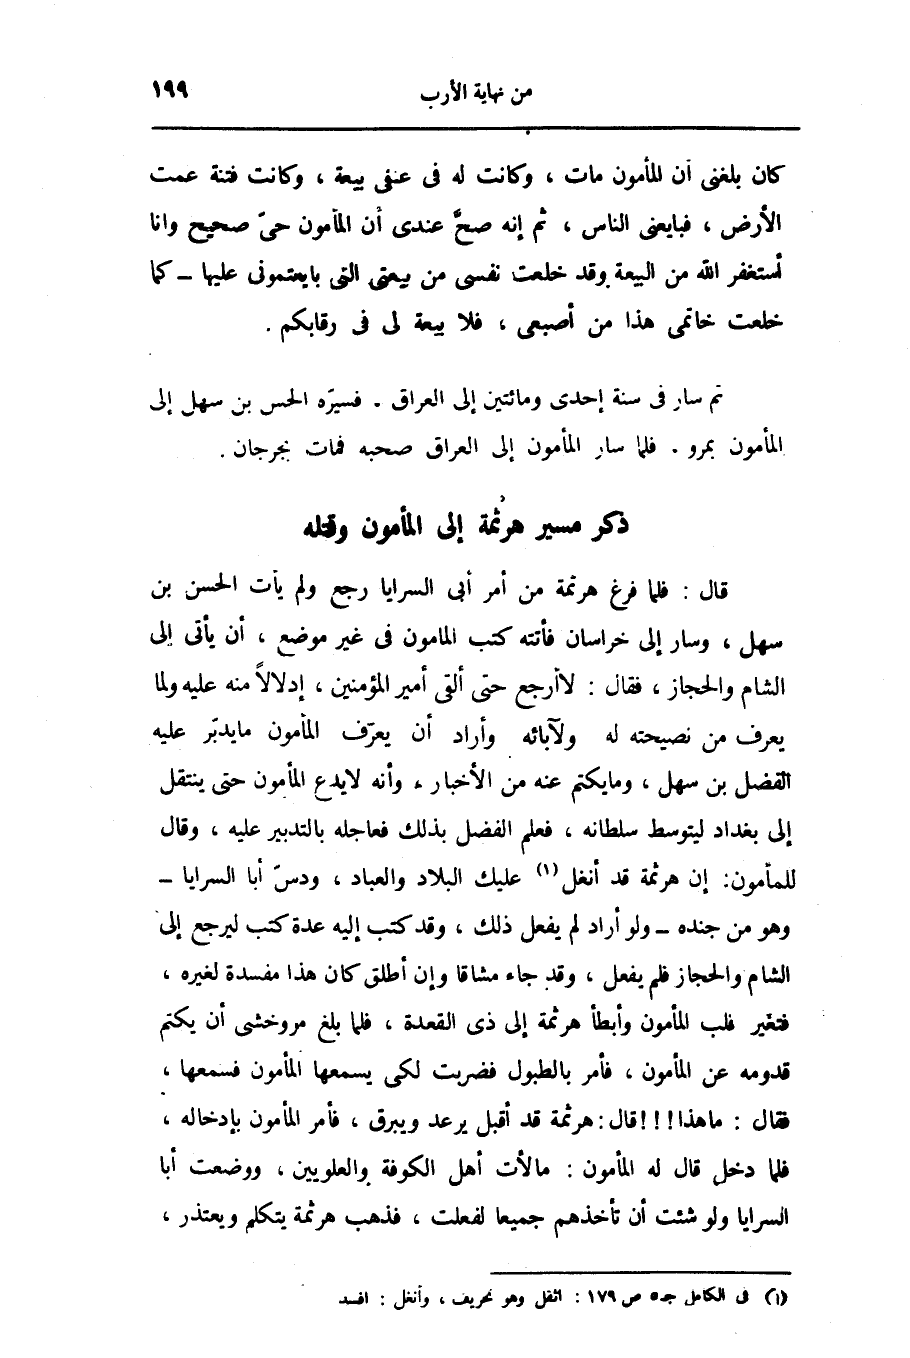 من نهاية الأرب ١٩٩
كان بلغنى أن المأمون مات ، وكانت له فى عنقى بيعة ، وكانت فتنة عمت
الأرض ، فبايعنى الناس ، ثم إنه صحَّ عندى أن المأمون حىّ صحيح وانا
أستغفر الله من البيعة وقد خلعت نفسى من بيعتى التى بايعتمونى عليها – كما
خلعت خاتمى هذا من أصبعى ، فلا بيعة لى فى رقابكم .
ثم سار فى سنة إحدى ومائتين إلى العراق . فسيّره الحسن بن سهل إلى
المأمون بمرو . فلما سار المأمون إلى العراق صحبه فمات بجرجان .
ذكر مسير هرثمة إلى المأمون وقتله
قال : فلما فرغ هرثمة من أمر أبى السرايا رجع ولم يأت الحسن بن
سهل ، وسار إلى خراسان فأتته كتب المامون فى غير موضع ، أن يأتى إلى
الشام والحجاز ، فقال : لاأرجع حتى ألقى أمير المؤمنين ، إدلالاً منه عليه ولما
يعرف من نصيحته له ولآبائه وأراد أن يعرّف المأمون مايدبّر عليه
الفضل بن سهل ، ومايكتم عنه من الأخبار ، وأنه لايدع المأمون حتى ينتقل
إلى بغداد ليتوسط سلطانه ، فعلم الفضل بذلك فعاجله بالتدبير عليه ، وقال
للمأمون: إن هرثمة قد أنغل (١) عليك البلاد والعباد ، ودسّ أبا السرايا –
وهو من جنده – ولو أراد لم يفعل ذلك ، وقد كتب إليه عدة كتب ليرجع إلى
الشام والحجاز فلم يفعل ، وقد جاء مشاقا وإن أطلق كان هذا مفسدة لغيره ،
فتغير قلب المأمون وأبطأ هرثمة إلى ذى القعدة ، فلما بلغ مروخشى أن يكتم
قدومه عن المأمون ، فأمر بالطبول فضربت لكى يسمعها المأمون فسمعها ،
فقال : ماهذا!!!قال: هرثمة قد أقبل يرعد ويبرق ، فأمر المأمون بإدخاله ،
فلما دخل قال له المأمون : مالأت أهل الكوفة والعلويين ، ووضعت أبا
السرايا ولو شئت أن تأخذهم جميعا لفعلت ، فذهب هرثمة يتكلم ويعتذر ،
(١) فى الكامل جـ٥ ص ١٧٩ : اثقل وهو تحريف ، وأنغل : افسد